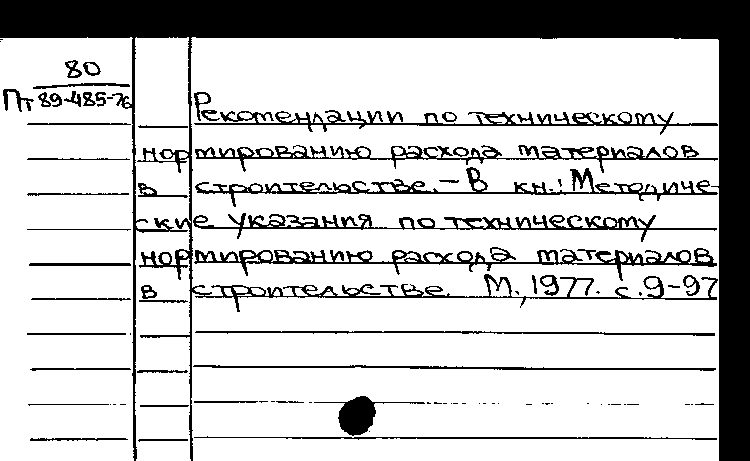 80
Пт 89-485-76
Рекомендации по техническому
нормированию расхода материалов
в строительстве. – В кн.: Методиче-
ские указания по техническому
нормированию расхода материалов
в строительстве. М., 1977. с. 9-97